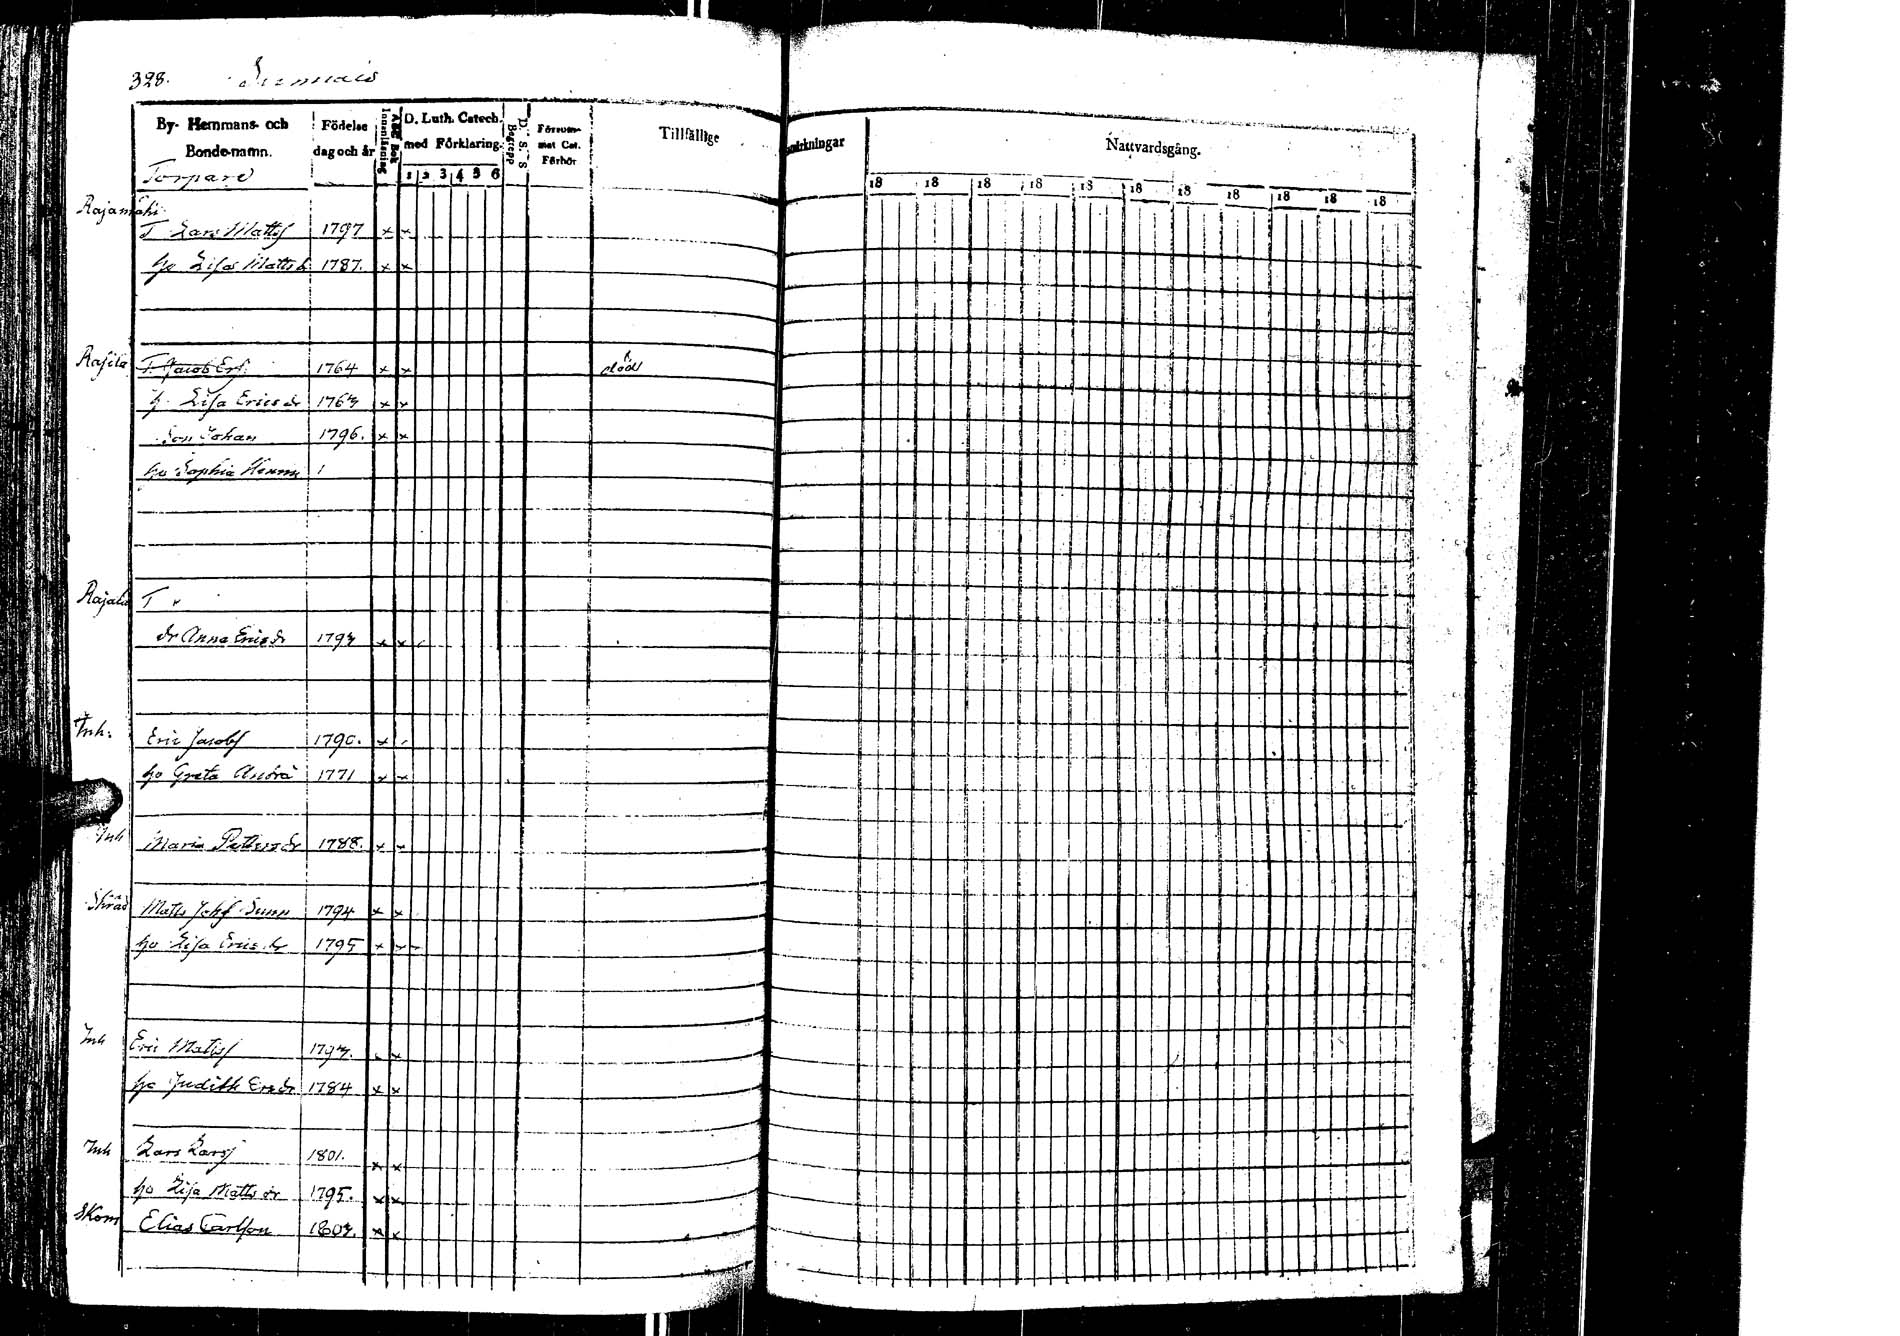 328. Sunnais
By- Hemmans- och Bonde-namn. Födelse dag och år Innanläsning ABC Bok D. Luth. Catech. med Förklaring. 1 2 3 4 5 6 D. S. S. Begrepp Försummat Cat. Förhör Tillfällige
Anmärkningar Nattvardsgång.
18 18 18 18 18 18 18 18 18 18 18
Torpare
Rajamäki
T Lars Matts 1797 × ×
hu Lisa Matts dr 1787. × ×
Rajila T. Jacob Ers. 1764 × × död
h. Lisa Erics dr 1763 × ×
Son Johan 1796. × ×
hu Sophia Henr 1
Rajala T
dr Anna Erics dr 1793 × ×
Inh. Eric Jacobs 1790. ×
hu Greta Andra 1771 × ×
Inh Maria Petters dr 1788. × ×
Skräd Matts Johs Sunn 1794 × ×
hu Lisa Erics dr 1795 × ×
Inh Eric Matts 1793. ×
hu Judith Ers dr 1784 × ×
Inh Lars Lars 1801. × ×
hu Lisa Matts dr 1795. × ×
Skom Elias Carlson 1803. × ×